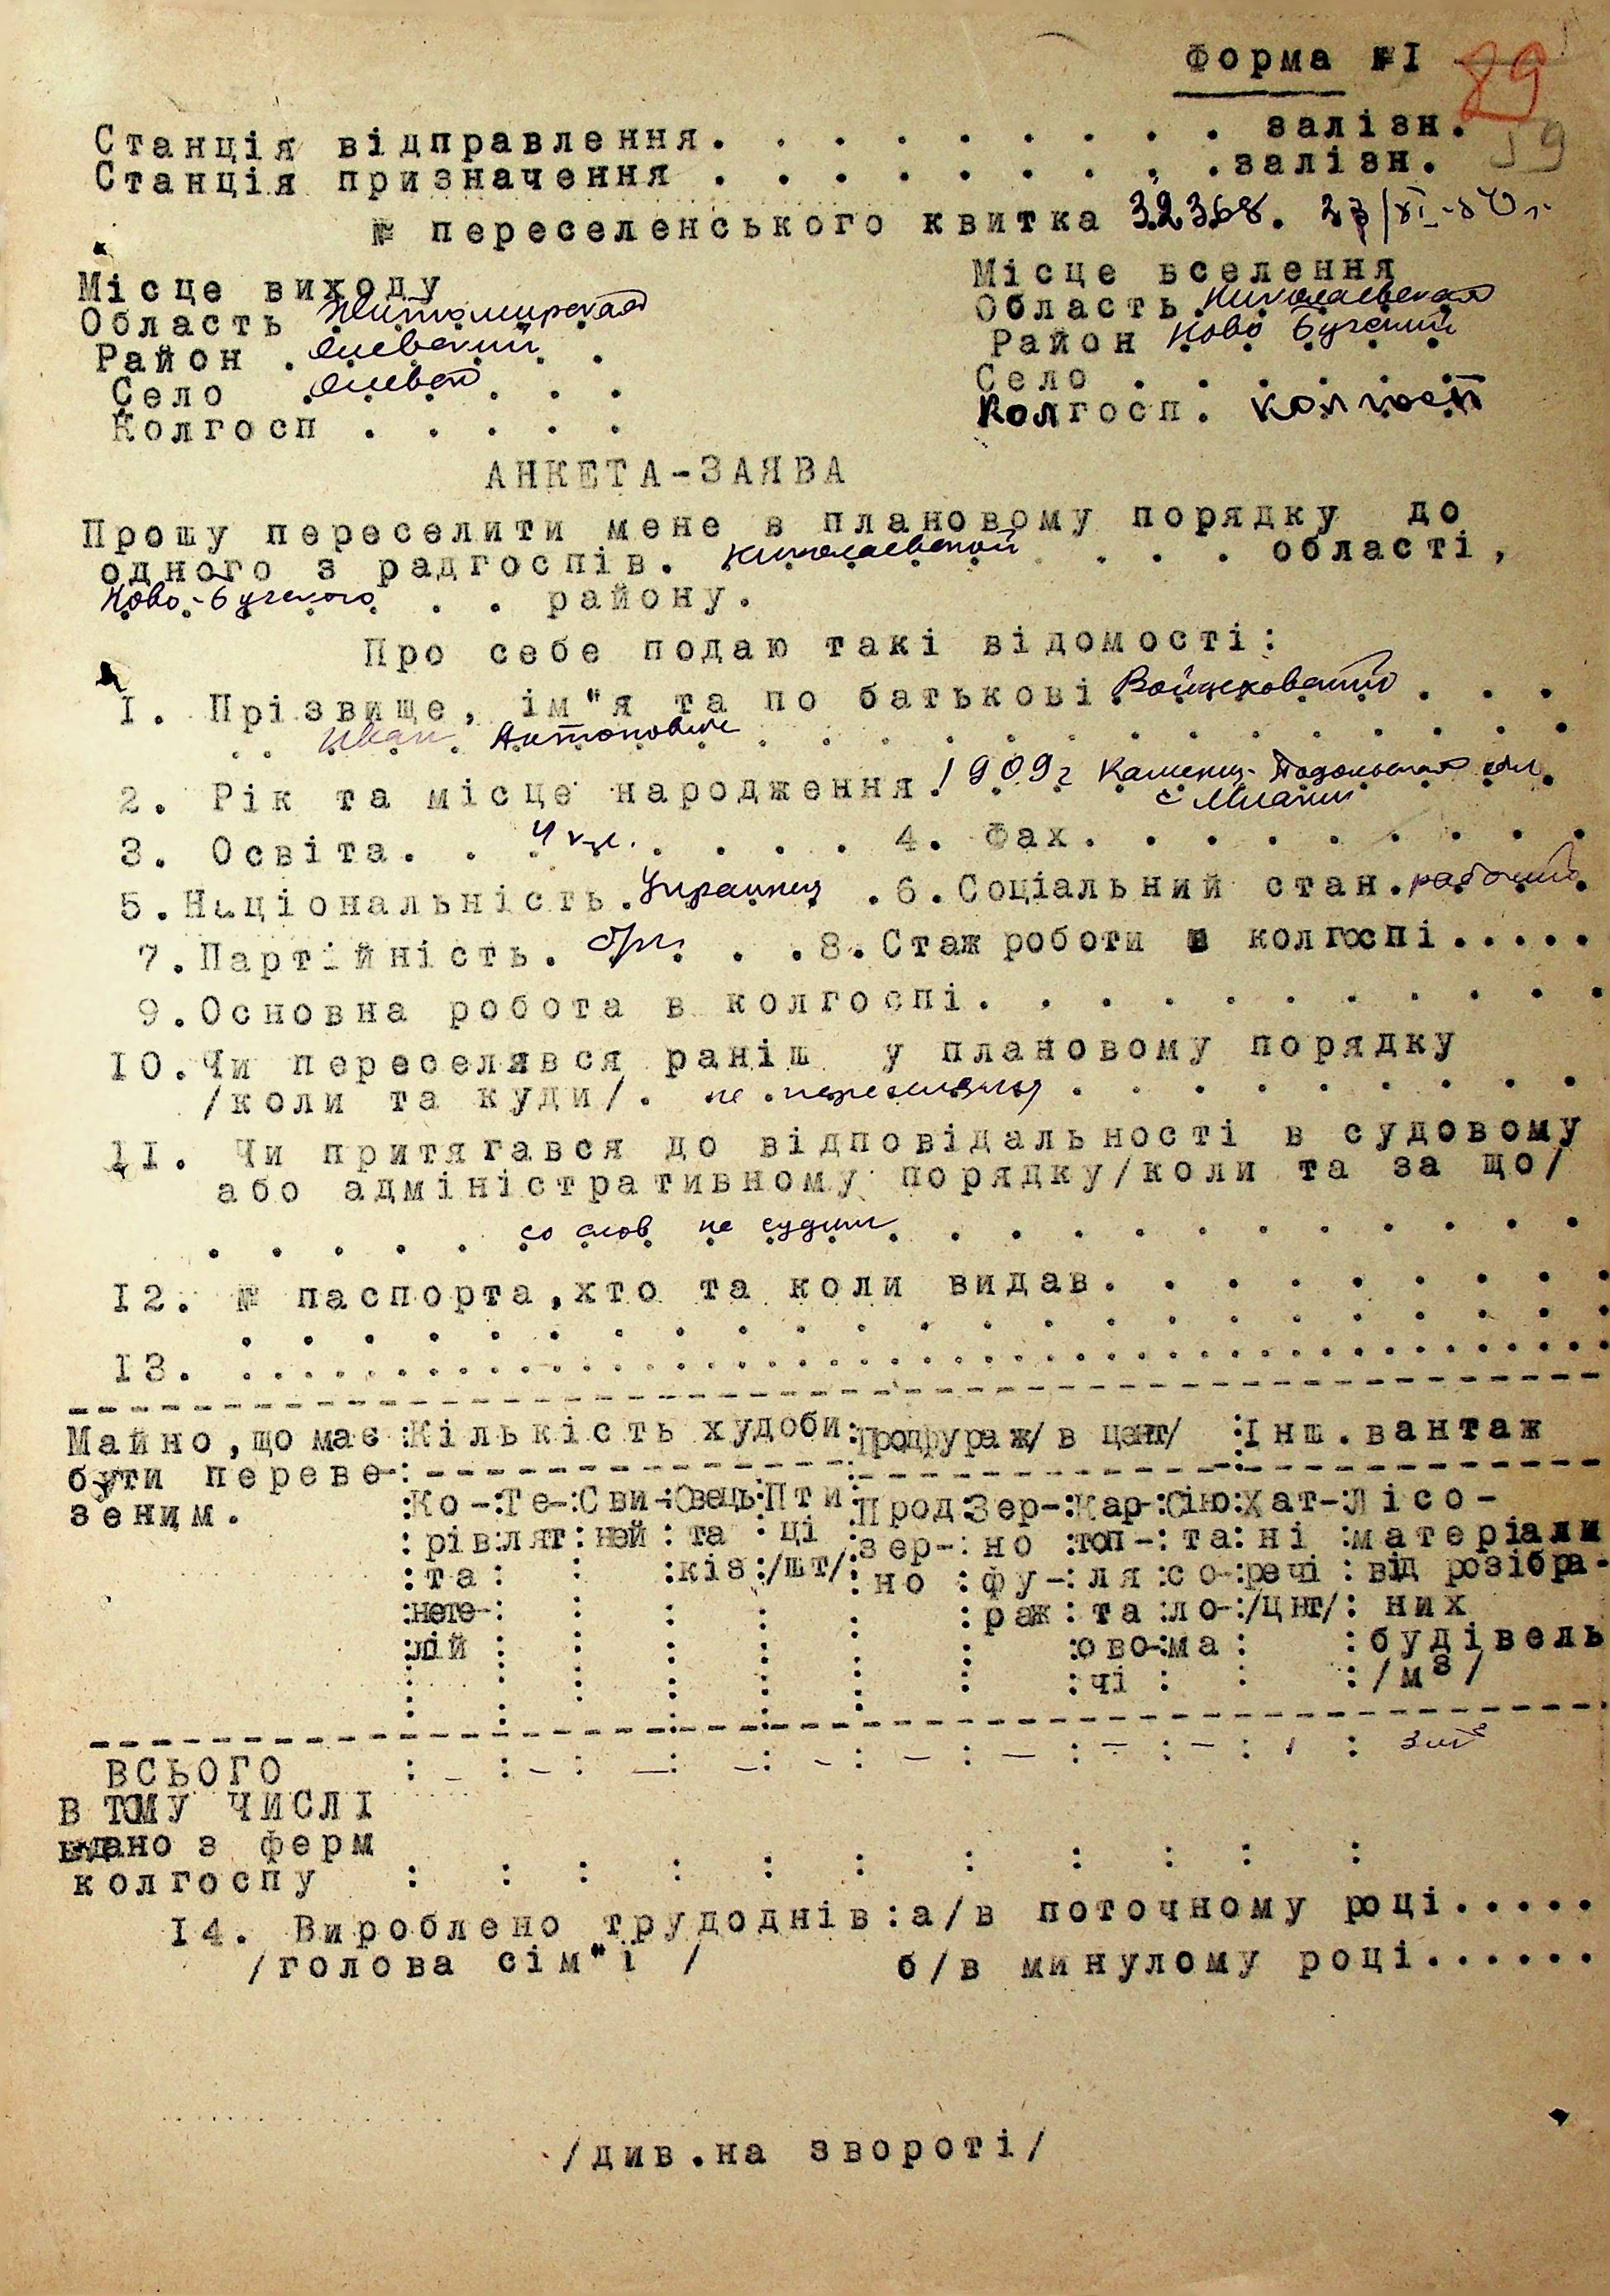 Форма №I 89
59
Станція відправлення. . . . . . . . . залізн.
Станція призначення . . . . . . . . .залізн.
№ переселенського квитка 32368. 27/XI-50 г.
Місце виходу
Область Житомирская
Район . Олевский . .
Село . Олевск . . .
Колгосп . . . . .
Місце вселення
Область Николаевская
Район Ново Бугский
Село . . . . . .
Колгосп. колгосп
АНКЕТА-ЗАЯВА
Прошу переселити мене в плановому порядку до
одного з радгоспів. Николаевской . . . області,
Ново-Бугского . . району.
Про себе подаю такі відомості:
I. Прізвище, ім"я та по батькові Войцеховский . . .
. . Иван Антонович . . . . . . . . . . . . . .
2. Рік та місце народження. 1909 г Каменец-Подольская обл.
с
3. Освіта. . 4 кл. . . . . 4. Фах. . . . . . . . .
5.Національність.Украинец .6.Соціальний стан.рабочий
7.Партійність. б/п. . .8.Стаж роботи в колгоспі.....
9.Основна робота в колгоспі. . . . . . . . . . .
I0.Чи переселявся раніш у плановому порядку
/коли та куди/. не переселялся . . . . . . . . .
II. Чи притягався до відповідальності в судовому
або адміністративному порядку/коли та за що/
. . . . . со слов не судим . . . . . . . . . . . .
I2. № паспорта,хто та коли видав. . . . . . . . .
. . . . . . . . . . . . . . . . . . . . . . .
I3. . . . . . . . . . . . . . . . . . . . . . . . .
Майно,що має :Кількість худоби:Продфураж/в цент/ :Інш.вантаж
бути переве-:
зеним. :Ко-:Те-:Сви-:Овець:Пти:Прод:Зер-:Кар-:Сіно:Хат-:Лісо-
:рів:лят:ней : та : ці :зер-: но :топ-: та: ні :матеріали
:та : : :кіз:/шт/:но :фу-:ля :со-:речі : від розібра-
:нете-: : : : : :раж: та :ло-:/цнт/: них
:лій : : : : : : :ово-:ма : :будівель
: : : : : : : :чі : : :/м3/
ВСЬОГО : - : - : - : - : - : - : - : - : - : : 3 м³
В ТОМУ ЧИСЛІ
видано з ферм
колгоспу : : : : : : : : : : :
I4. Вироблено трудоднів:а/в поточному році.....
/голова сім"ї / б/в минулому році......
/див.на звороті/